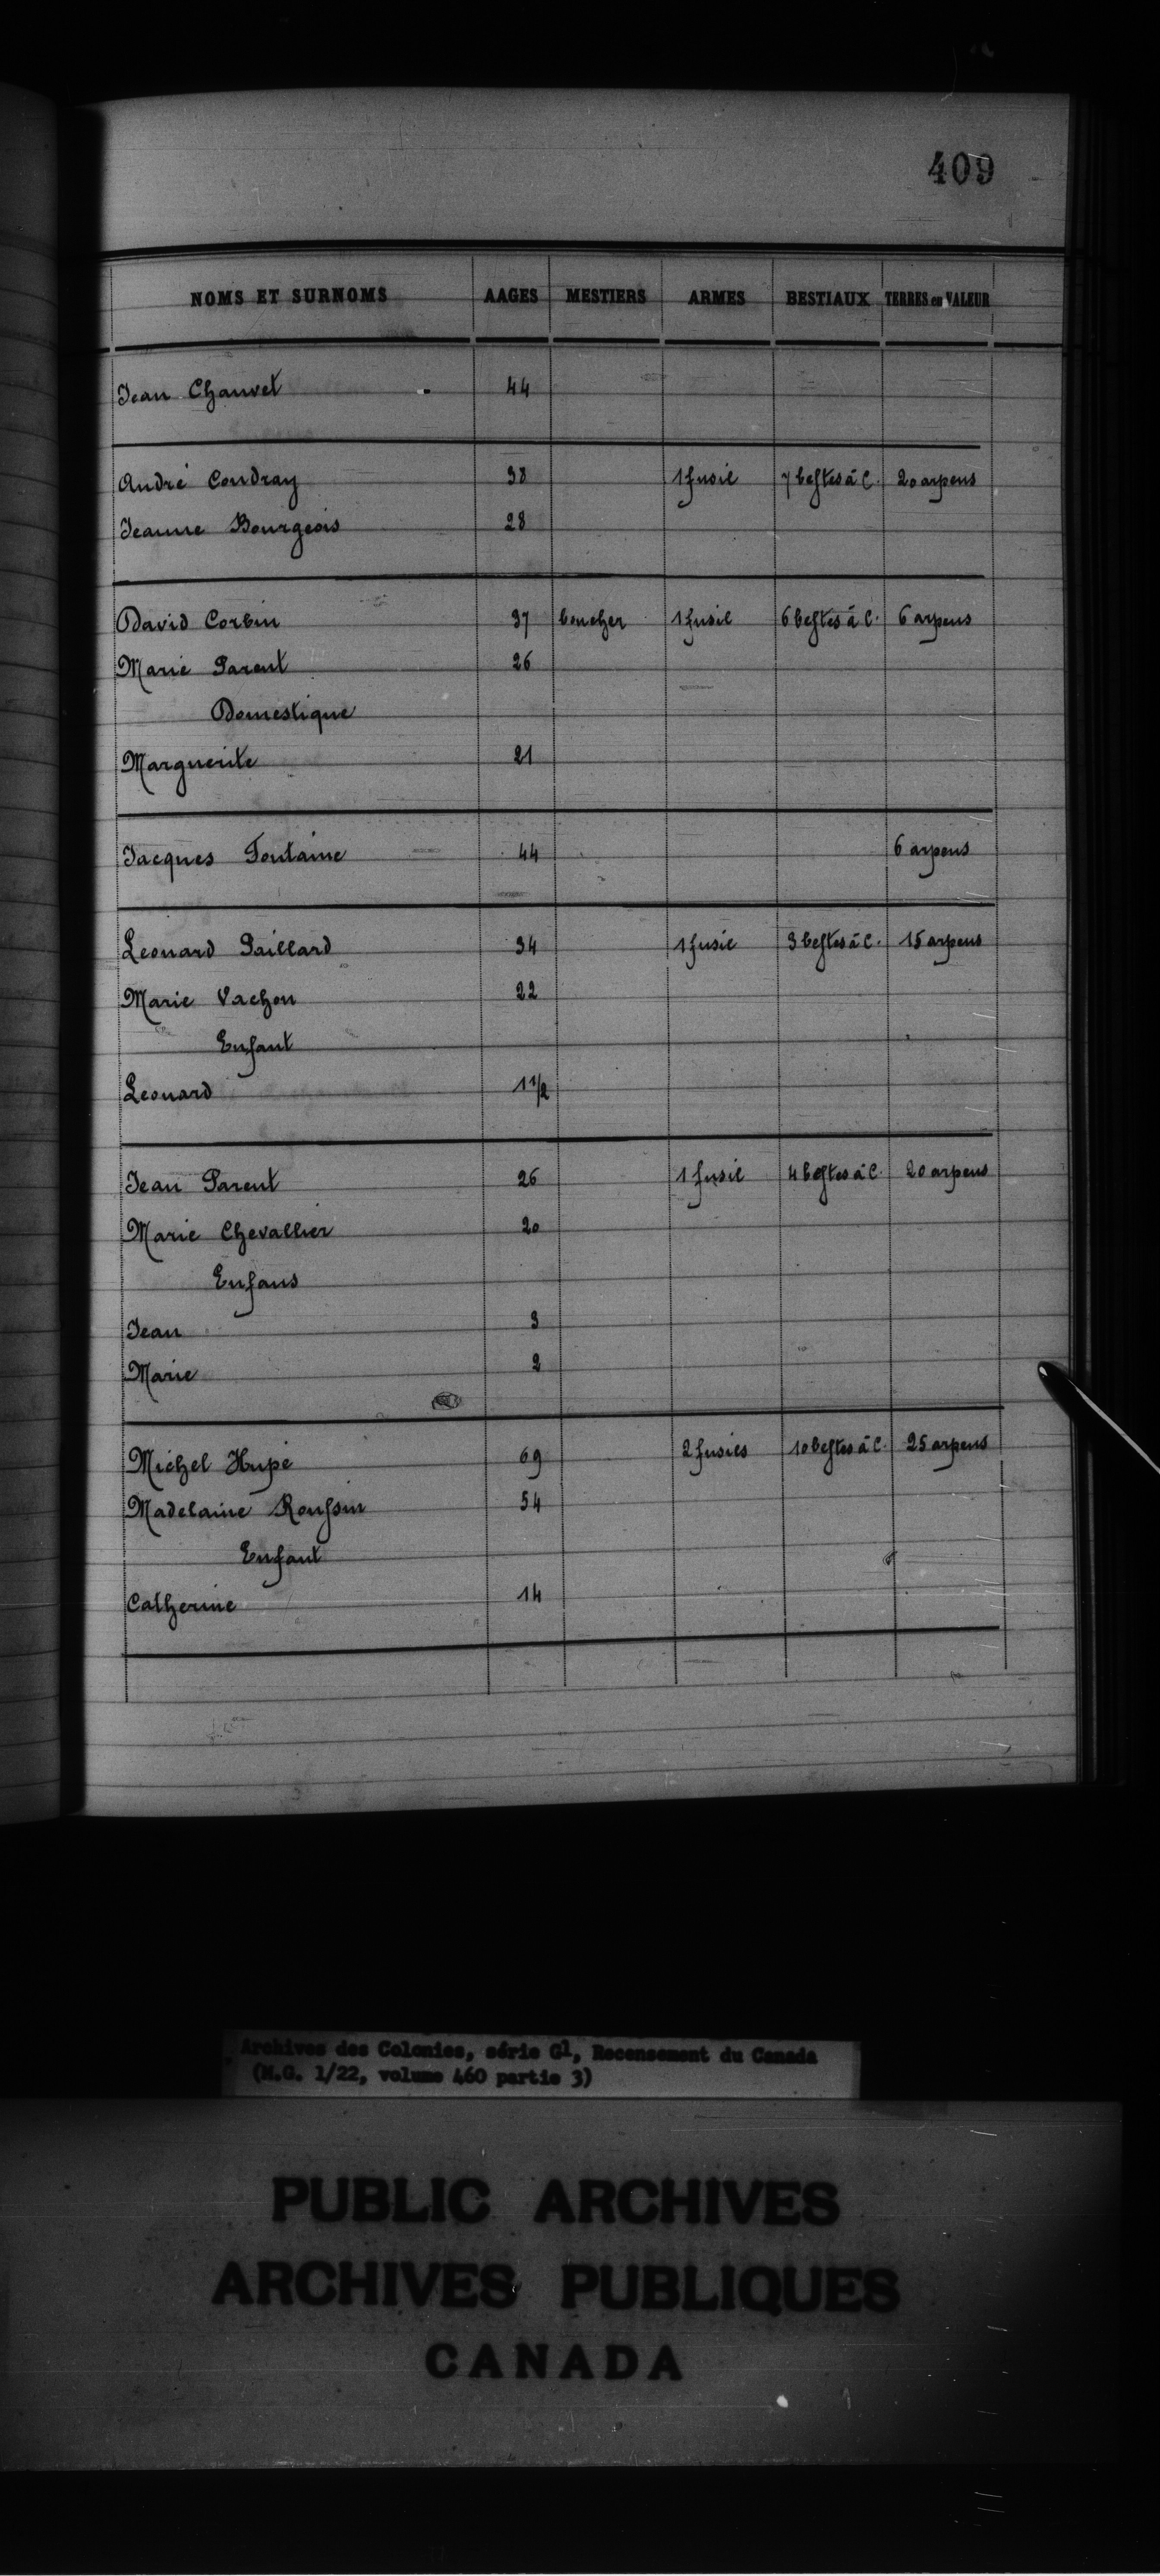 409
NOMS ET SURNOMS AAGES MESTIERS ARMES BESTIAUX TERRES en VALEUR
Jean Chauvet 44
André Coudray 38 1 fusil 7 bestes à C. 20 arpens
Jeanne Bourgeois 28
David Corbin 37 boucher 1 fusil 6 bestes à C. 6 arpens
Marie Parent 26
Domestique
Marguerite 21
Jacques Fontaine 44 6 arpens
Leonard Paillard 34 1 fusil 3 bestes à C. 15 arpens
Marie Vachon 22
Enfant
Leonard 1 1/2
Jean Parent 26 1 fusil 4 bestes à C. 20 arpens
Marie Chevallier 20
Enfans
Jean 3
Marie 2
Michel Hupé 69 2 fusies 10 bestes à C. 25 arpens
Madelaine Roussin 54
Enfant
Catherine 14
Archives des Colonies, série G1, Recensement du Canada
(M.G. 1/22, volume 460 partie 3)
PUBLIC ARCHIVES
ARCHIVES PUBLIQUES
CANADA